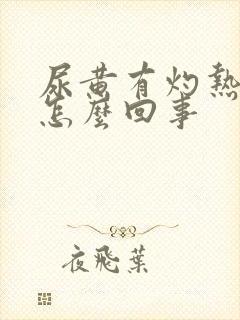 尿黄有灼熱
怎麼回事
夜飛葉